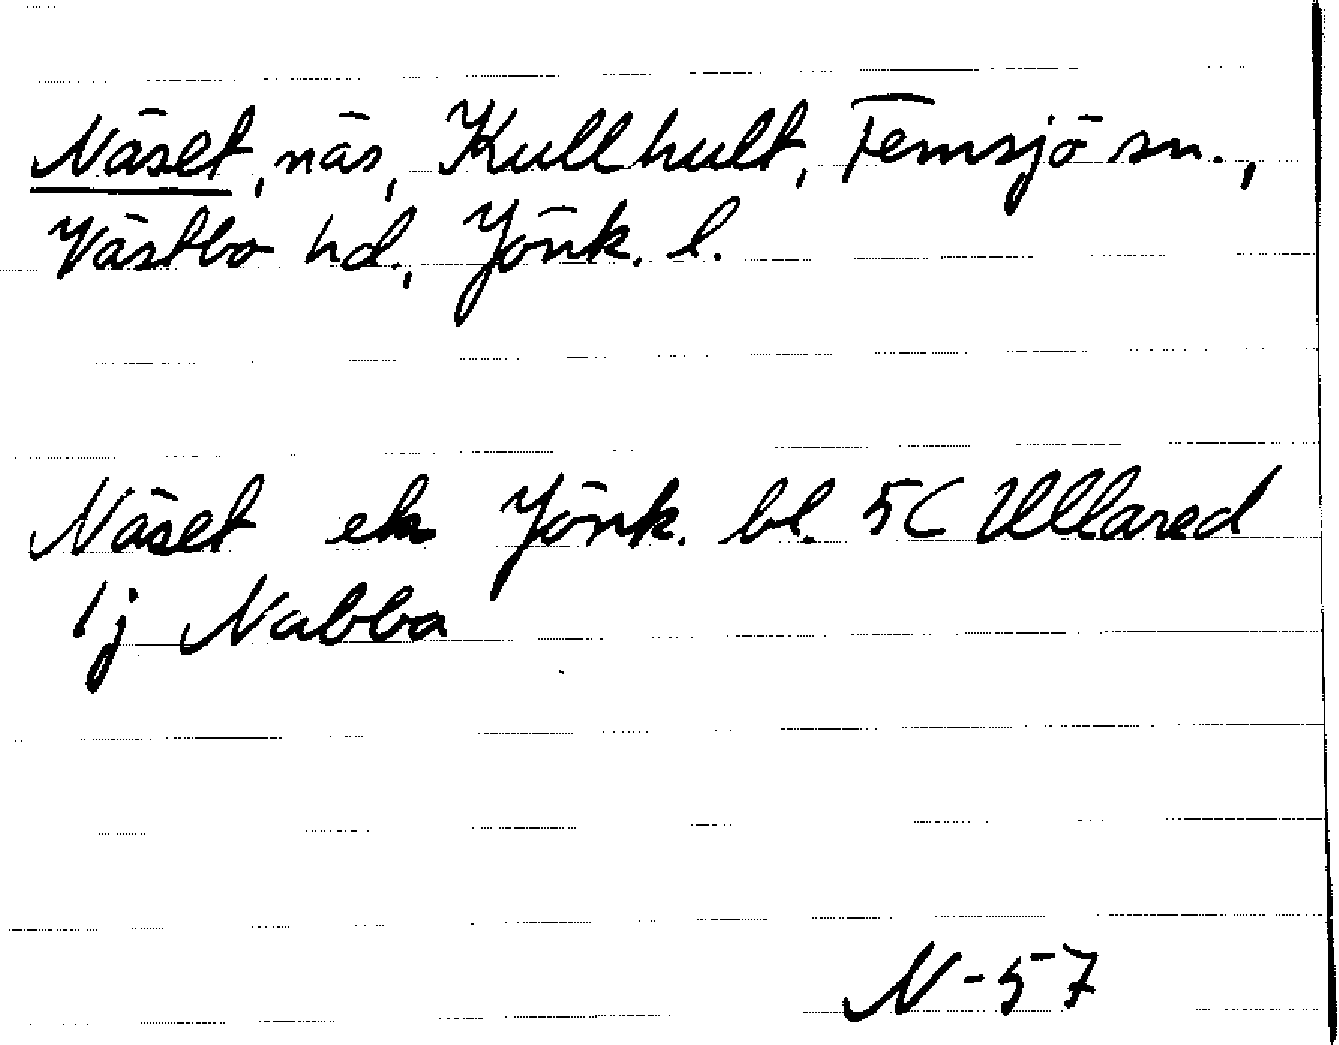 Näset, näs, Kullhult, Femsjö sn.,
Västbo hd., Jönk. l.
Näset ek Jönk. bl. 5C Ullared
1j Nabba
N-57